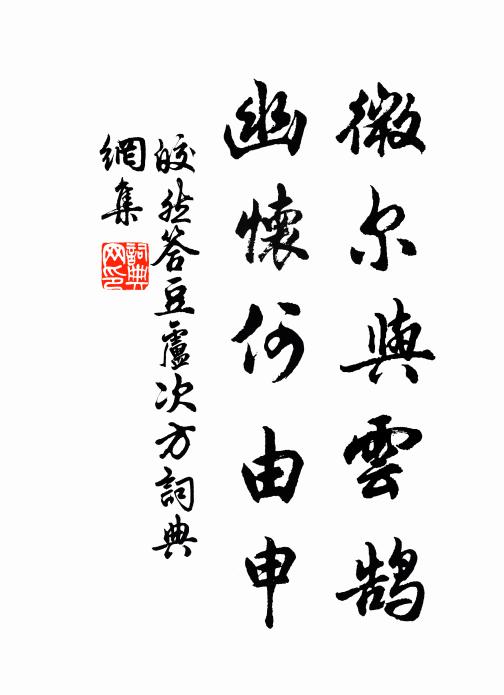 微尔與雲鹄
幽懷何由申
皎然答豆盧次方詞典
網集
詞典
网印